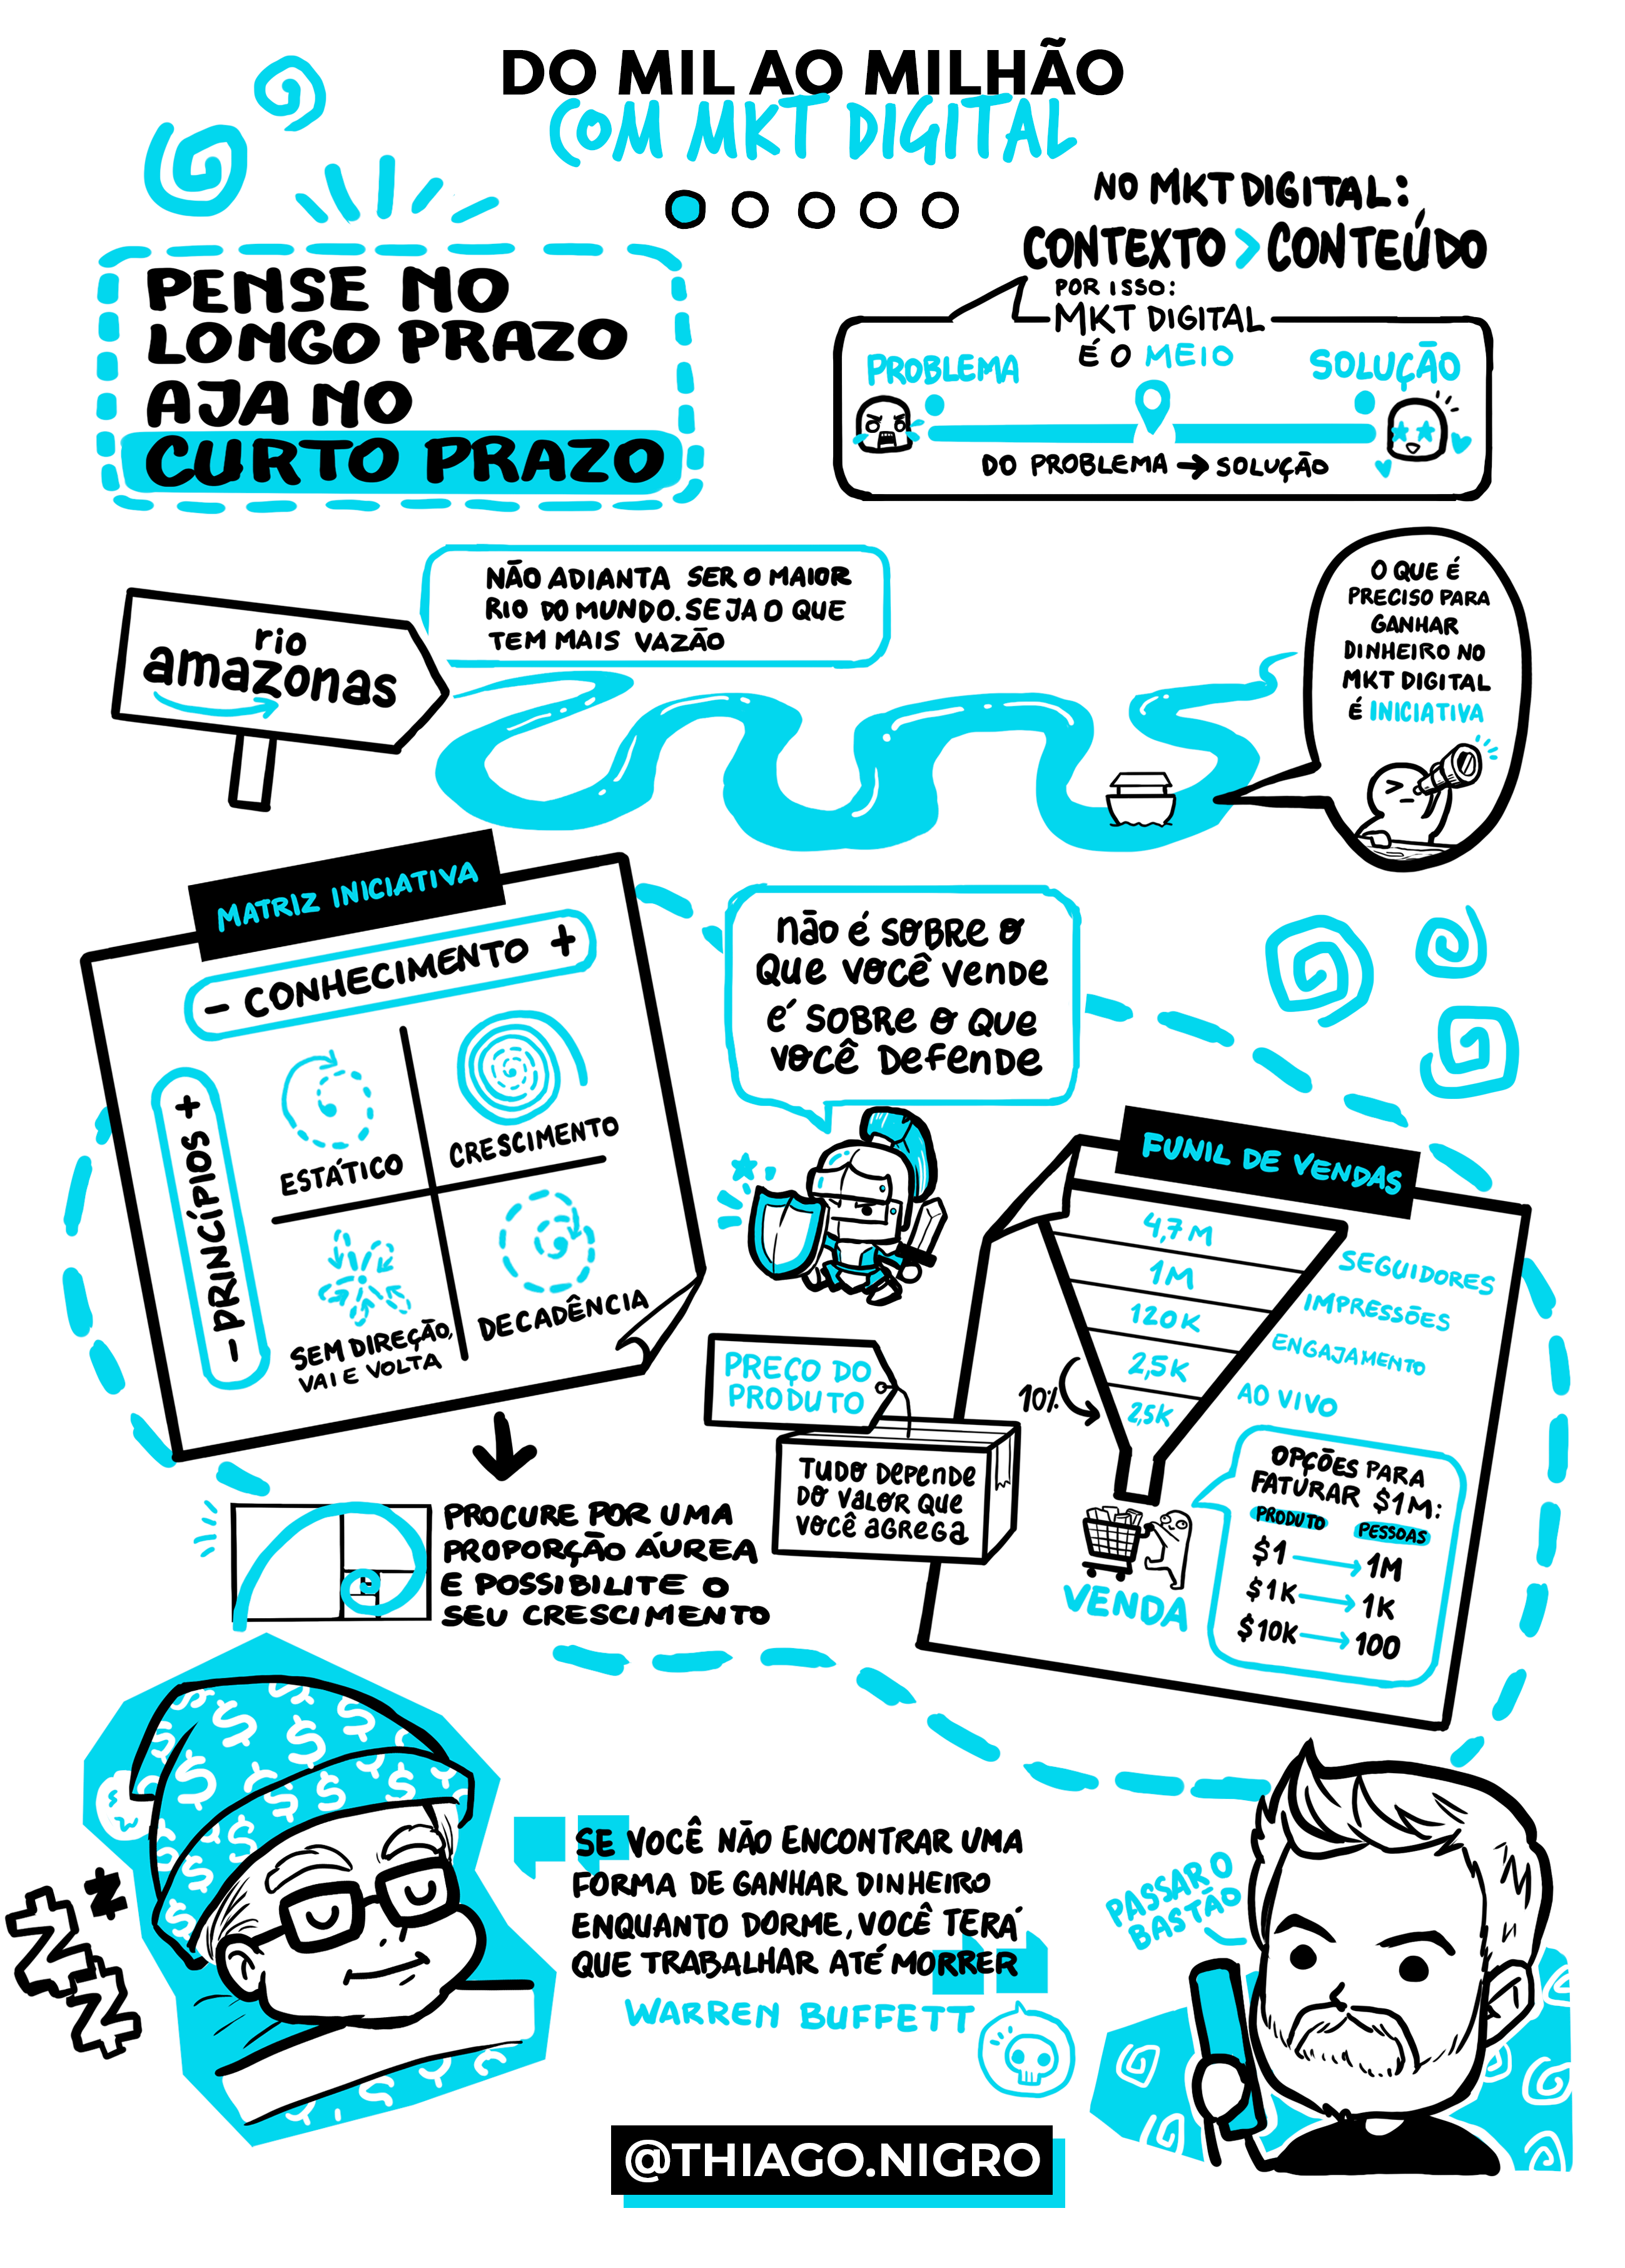 DO MIL AO MILHÃO
COM MKT DIGITAL
PENSE NO
LONGO PRAZO
AJA NO
CURTO PRAZO
NO MKT DIGITAL:
CONTEXTO > CONTEÚDO
POR ISSO:
MKT DIGITAL
É O MEIO
PROBLEMA
SOLUÇÃO
DO PROBLEMA → SOLUÇÃO
rio
amazonas
NÃO ADIANTA SER O MAIOR
RIO DO MUNDO. SEJA O QUE
TEM MAIS VAZÃO
O QUE É
PRECISO PARA
GANHAR
DINHEIRO NO
MKT DIGITAL
É INICIATIVA
MATRIZ INICIATIVA
- CONHECIMENTO +
- PRINCÍPIOS +
ESTÁTICO
CRESCIMENTO
SEM DIREÇÃO,
VAI E VOLTA
DECADÊNCIA
não é sobre o
que você vende
é sobre o que
você defende
PROCURE POR UMA
PROPORÇÃO ÁUREA
E POSSIBILITE O
SEU CRESCIMENTO
PREÇO DO
PRODUTO
TUDO DEPENDE
DO VALOR QUE
VOCÊ AGREGA
FUNIL DE VENDAS
4,7 M
SEGUIDORES
1M
IMPRESSÕES
120K
ENGAJAMENTO
2,5K
AO VIVO
10%
2,5K
VENDA
OPÇÕES PARA
FATURAR $1M:
PRODUTO PESSOAS
$1 → 1M
$1K → 1K
$10K → 100
Z Z Z Z
SE VOCÊ NÃO ENCONTRAR UMA
FORMA DE GANHAR DINHEIRO
ENQUANTO DORME, VOCÊ TERÁ
QUE TRABALHAR ATÉ MORRER
WARREN BUFFETT
PASSAR O
BASTÃO
@THIAGO.NIGRO